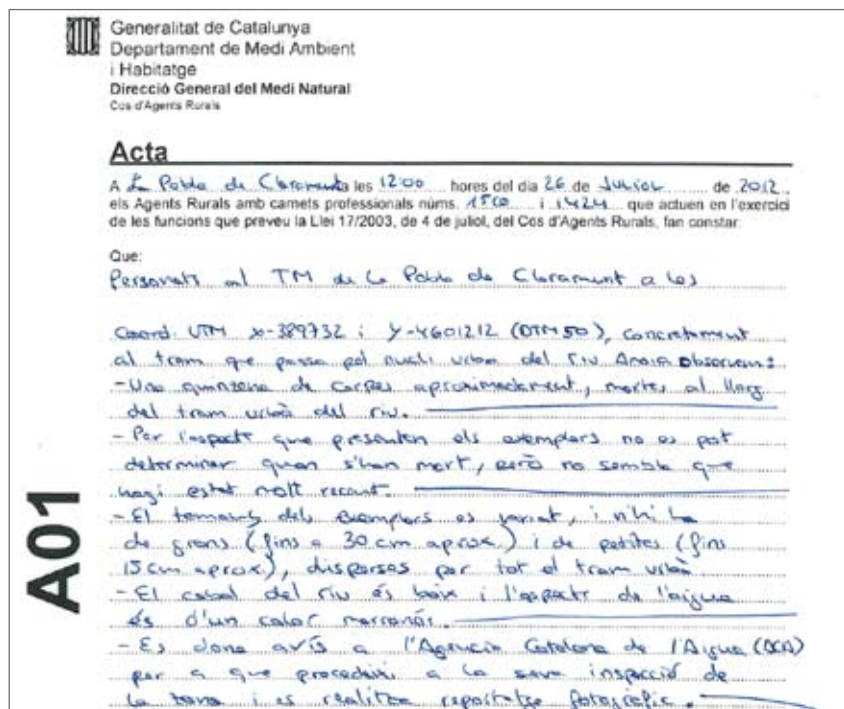 Generalitat de Catalunya
Departament de Medi Ambient
i Habitatge
Direcció General del Medi Natural
Cos d'Agents Rurals
Acta
A La Pobla de Claramunt a les 12:00 hores del dia 26 de Juliol de 2012,
els Agents Rurals amb carnets professionals núms. i 1424 que actuen en l'exercici
de les funcions que preveu la Llei 17/2003, de 4 de juliol, del Cos d'Agents Rurals, fan constar:
Que:
Personats al TM de La Pobla de Claramunt a les
Coord. UTM x-389732 i y-4601212 (DTM50), concretament
al tram que passa pel nucli urbà del riu Anoia observem:
- Una quinzena de carpes aproximadament, mortes al llarg
del tram urbà del riu.
- Per l'aspecte que presenten els exemplars no es pot
determinar quan s'han mort, però no sembla que
hagi estat molt recent.
- El tamany dels exemplars es variat, i n'hi ha
de grans (fins a 30 cm aprox.) i de petites (fins
15 cm aprox.), disperses per tot el tram urbà.
- El cabal del riu és baix i l'aspecte de l'aigua
és d'un color marronós.
- Es dona avís a l'Agencia Catalana de l'Aigua (ACA)
per a que procedeixi a la seva inspecció de
la zona i es realitza reportatge fotogràfic.
A01